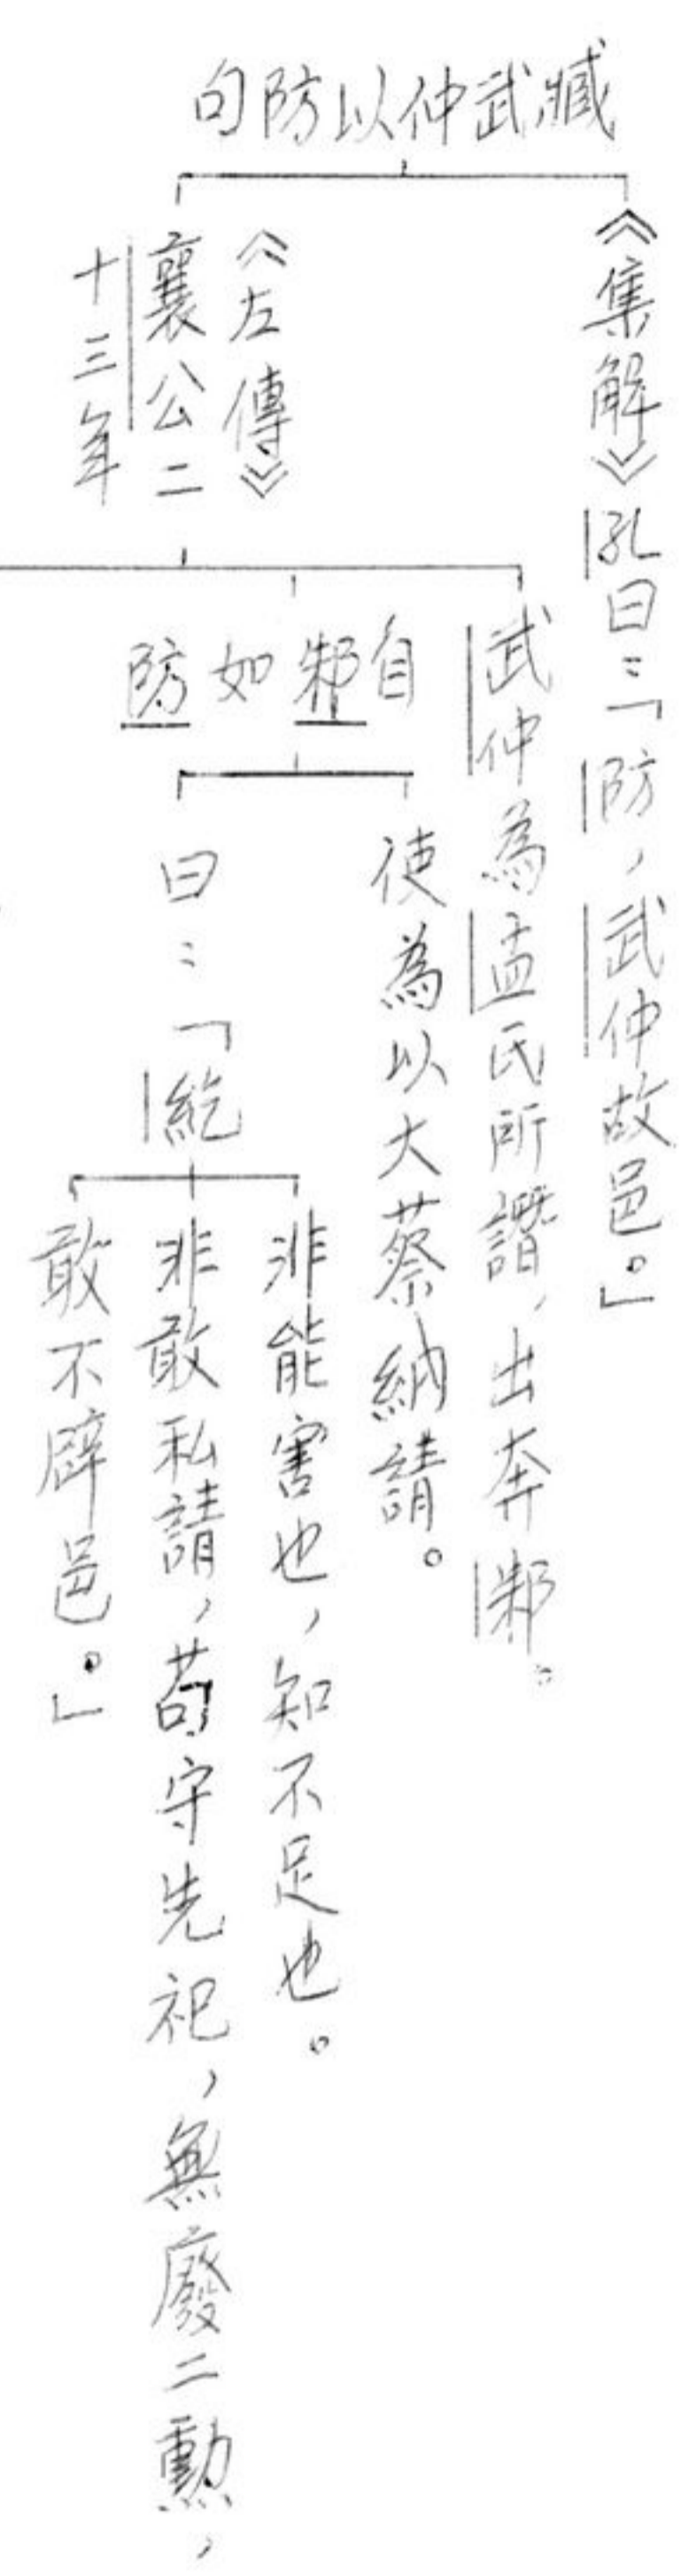 臧武仲以防句
《集解》孔曰：「防，武仲故邑。」
《左傳》
襄公二
十三年
武仲為孟氏所譖，出奔邾。
自邾如防
使為以大蔡納請。
曰：「紇
非能害也，知不足也。
非敢私請，苟守先祀，無廢二勳，
敢不辟邑。」